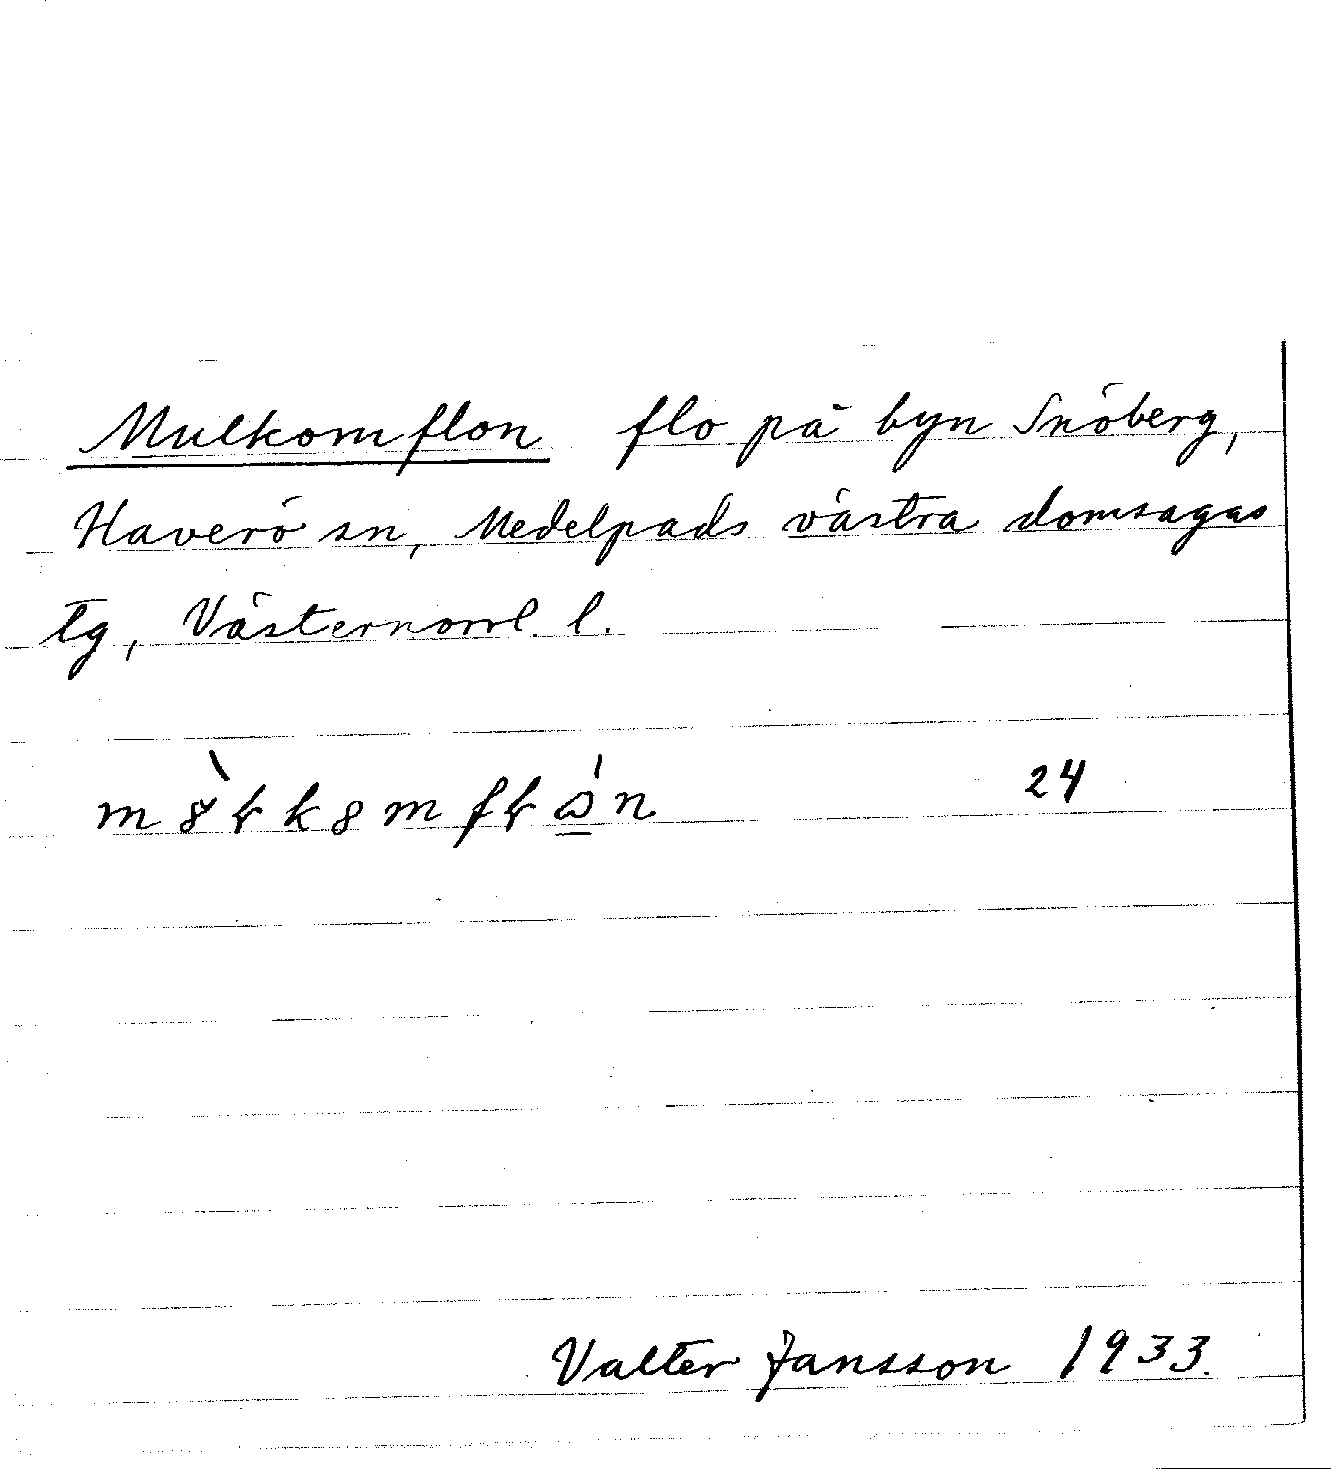 Mulkomflon flo på byn Snöberg,
Haverö sn, Medelpads västra domsagas
tg, Västernorrl. l.
24
Valter Jansson 1933.